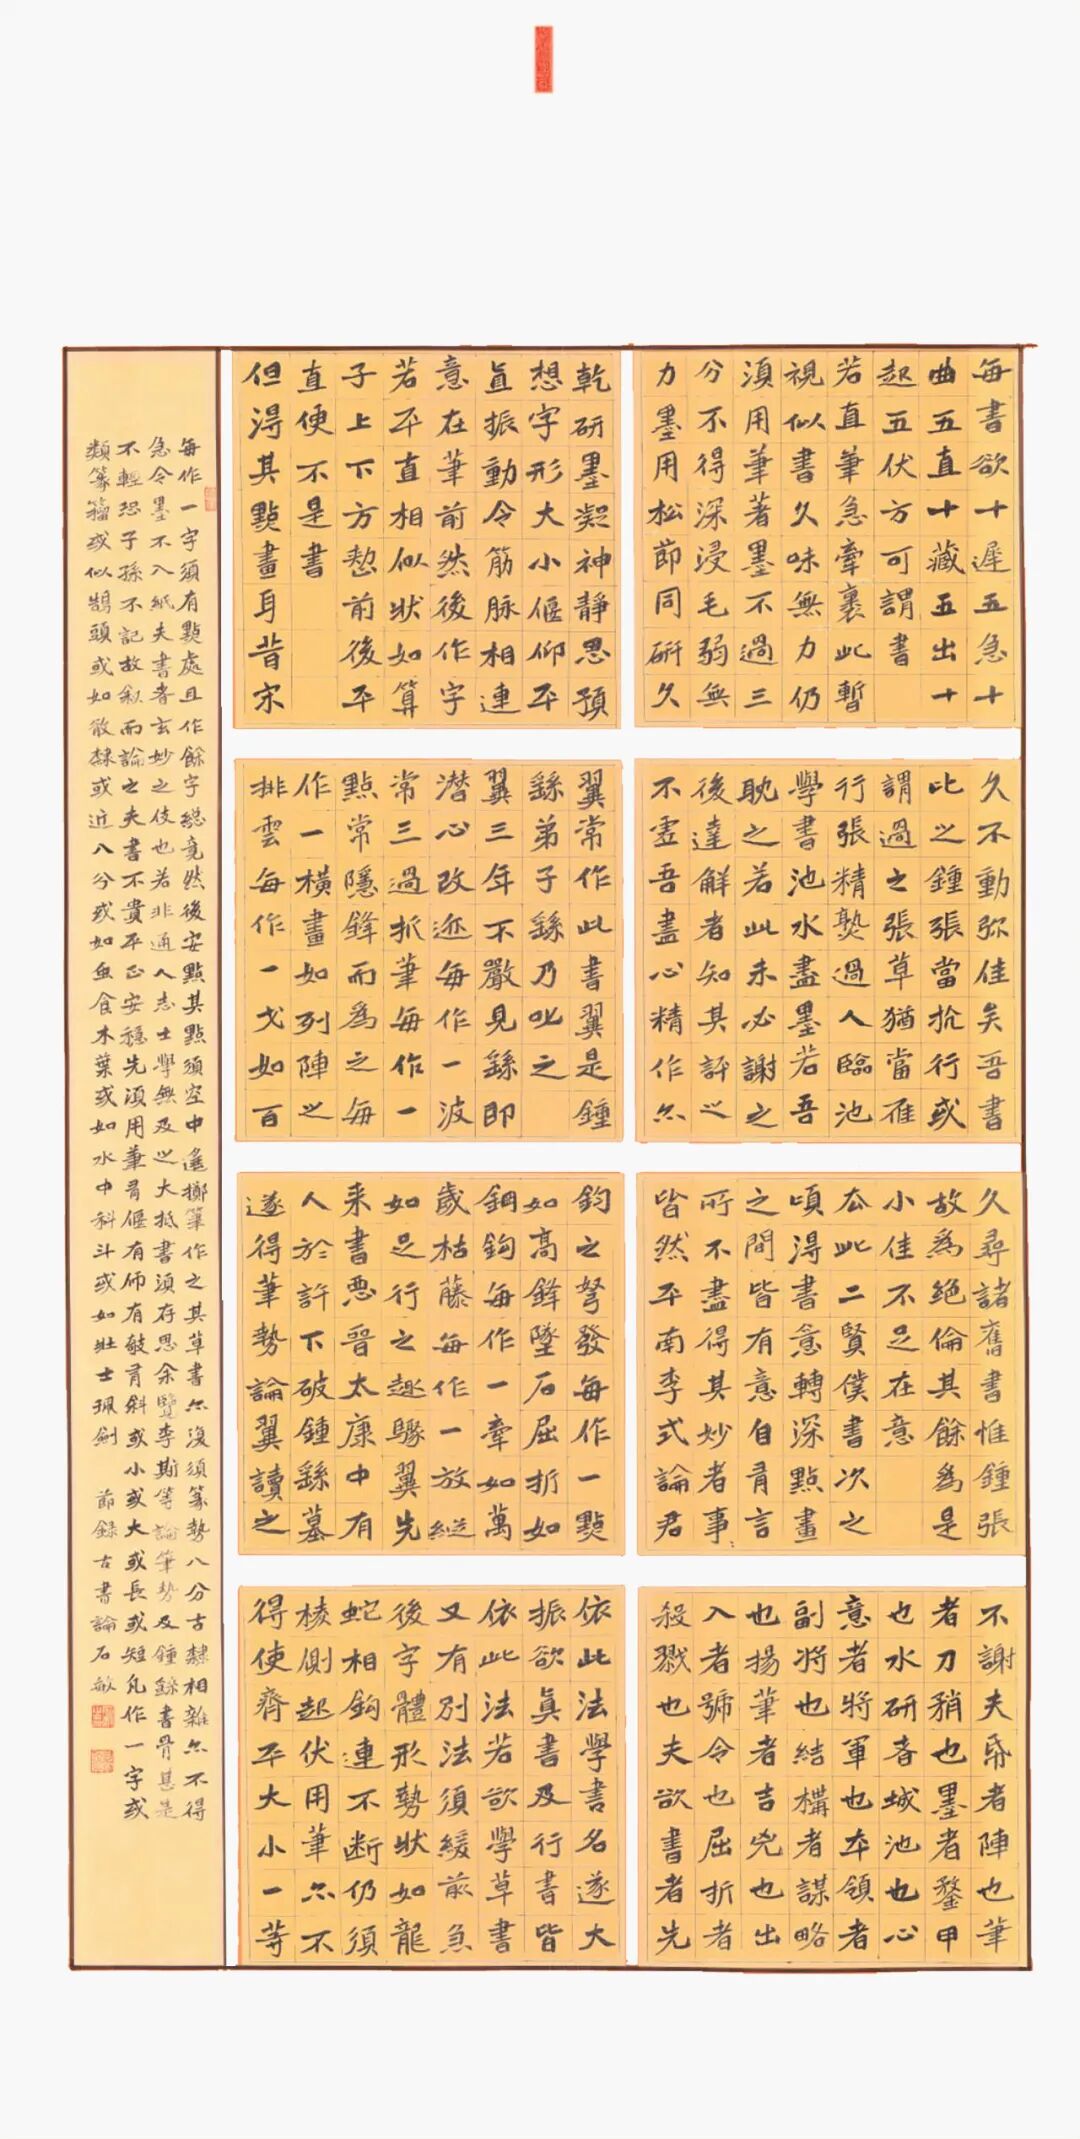 每書欲十遲五急十
曲五直十藏五出十
起五伏方可謂書
若直筆急牽裹此暫
視似書久味無力仍
須用筆著墨不過三
分不得深浸毛弱無
力墨用松節同研久
久不動弥佳矣吾書
比之鍾張當抗行或
謂過之張草猶當雁
行張精熟過人臨池
學書池水盡墨若吾
耽之若此未必謝之
後達解者知其評之
不虛吾盡心精作亦
久尋諸舊書惟鍾張
故為絕倫其餘為是
小佳不足在意
去此二賢僕書次之
頃得書意轉深點畫
之間皆有意自有言
所不盡得其妙者事
皆然平南李式論君
不謝夫帋者陣也筆
者刀矟也墨者鍪甲
也水研者城池也心
意者將軍也本領者
副將也結構者謀略
也揚筆者吉兇也出
入者號令也屈折者
殺戮也夫欲書者先
乾研墨凝神靜思預
想字形大小偃仰平
直振動令筋脉相連
意在筆前然後作字
若平直相似狀如算
子上下方整前後平
直便不是書
但得其點畫耳昔宋
翼常作此書翼是鍾
繇弟子繇乃叱之
翼三年不嚴見繇即
潛心改迹每作一波
常三過折筆每作一
點常隱鋒而為之每
作一橫畫如列陣之
排雲每作一戈如百
鈎之弩發每作一點
如高鋒墜石屈折如
鋼鈎每作一牽如萬
歲枯藤每作一放縱
如足行之趣驟翼先
来書惡晉太康中有
人於許下破鍾繇墓
遂得筆勢論翼讀之
依此法學書名遂大
振欲真書及行書皆
依此法若欲學草書
又有別法須緩前急
後字體形勢狀如龍
蛇相鈎連不断仍須
棱側起伏用筆亦不
得使齊平大小一等
每作一字須有點處且作餘字總竟然後安點其點須空中遙擲筆作之其草書亦復須篆勢八分古隸相雜亦不得
急令墨不入紙夫書者玄妙之伎也若非通人志士學無及之大抵書須存思余覽李斯等論筆勢及鍾繇書骨甚是
不輕恐子孫不記故敘而論之夫書不貴平正安穩先須用筆有偃有仰有攲有斜或小或大或長或短凡作一字或
類篆籀或似鵠頭或如散隸或近八分或如虫食木葉或如水中科斗或如壯士珮劍 節錄古書論石敏